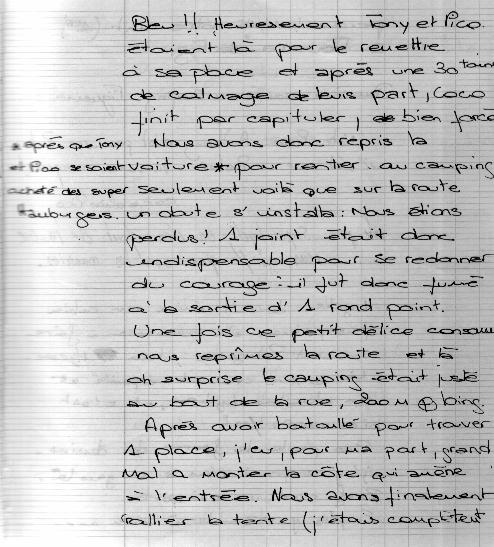 Bleu !! Heuresement Tony et Pico
étaient là pour le remettre
à sa place et après une 30taine
de calmage de leurs part, Coco
finit par capituler, bien forcé
Nous avons donc repris la
voiture * pour rentrer au camping
* après que Tony
et Pico se soient
acheté des super
seulement voilà que sur la route
un doute s'installa : Nous étions
perdus ! 1 joint était donc
indispensable pour se redonner
du courage : il fut donc fumé
à la sortie d'1 rond point.
Une fois ce petit délice consommé
nous reprîmes la route et là
oh surprise le camping était juste
au bout de la rue, 200 m + bing.
Après avoir bataillé pour trouver
1 place, j'eu, pour ma part, grand
mal a monter la côte qui amène
à l'entrée. Nous avons finalement
rallier la tente (j'étais complètent